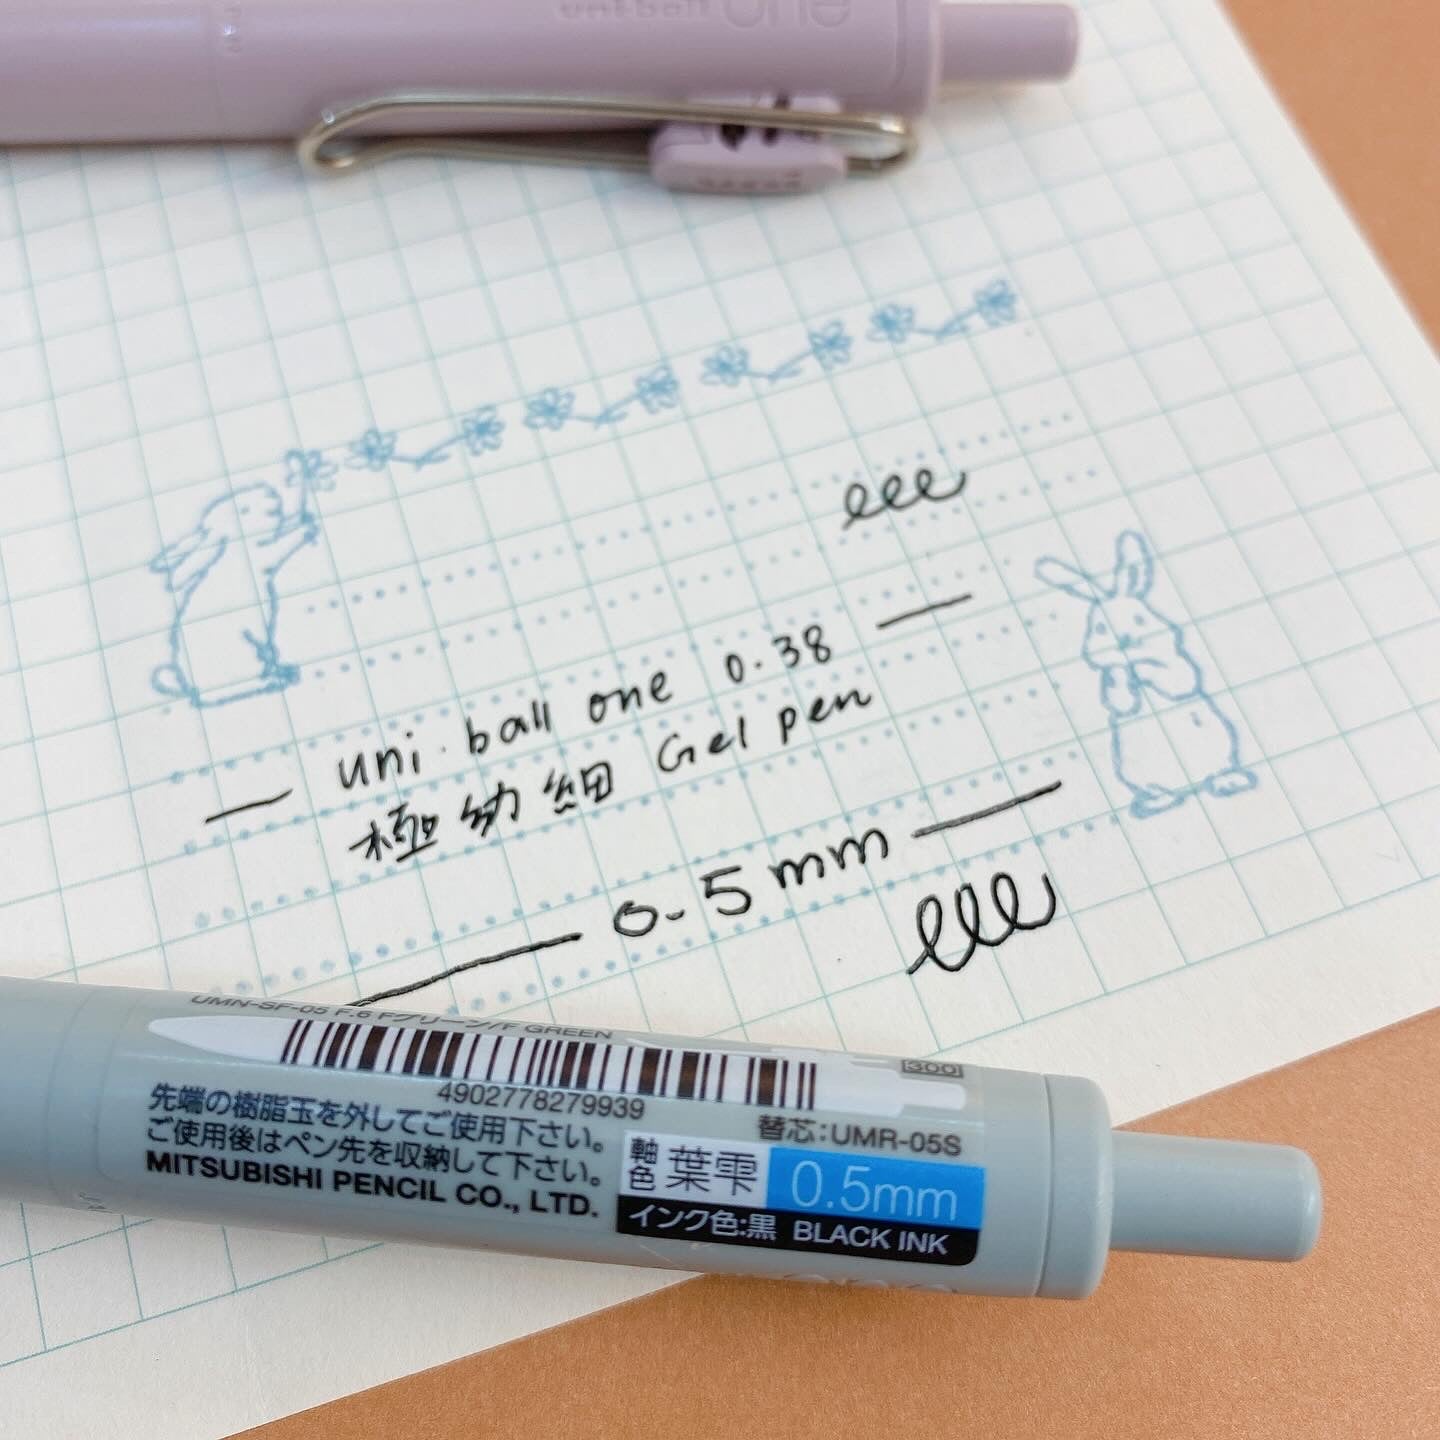 uni-ball one
uni・ball one 0.38
極幼細 Gel pen
0.5mm
UMN-SF-05 F.6 Fグリーン/F GREEN
300
4902778279939
先端の樹脂玉を外してご使用下さい。
ご使用後はペン先を収納して下さい。
MITSUBISHI PENCIL CO., LTD.
替芯:UMR-05S
軸色 葉雫 0.5mm
インク色:黒 BLACK INK